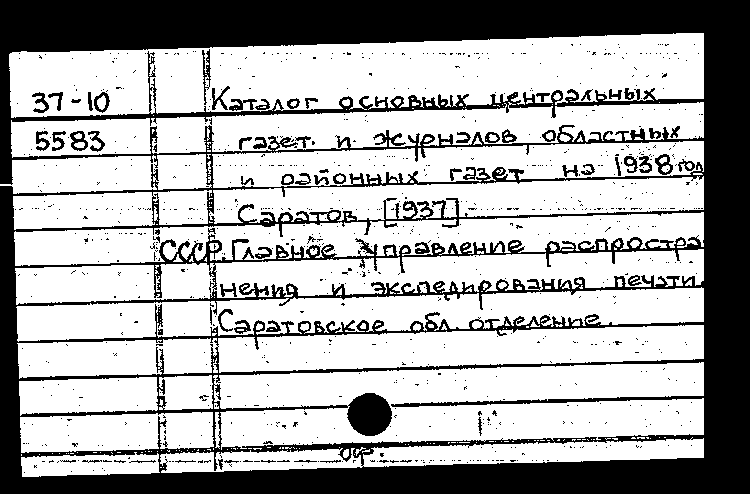 37-10 Каталог основных центральных
5583 газет и журналов, областных
и районных газет на 1938 год
Саратов, [1937].
СССР. Главное управление распростра
нения и экспедирования печати.
Саратовское обл. отделение.